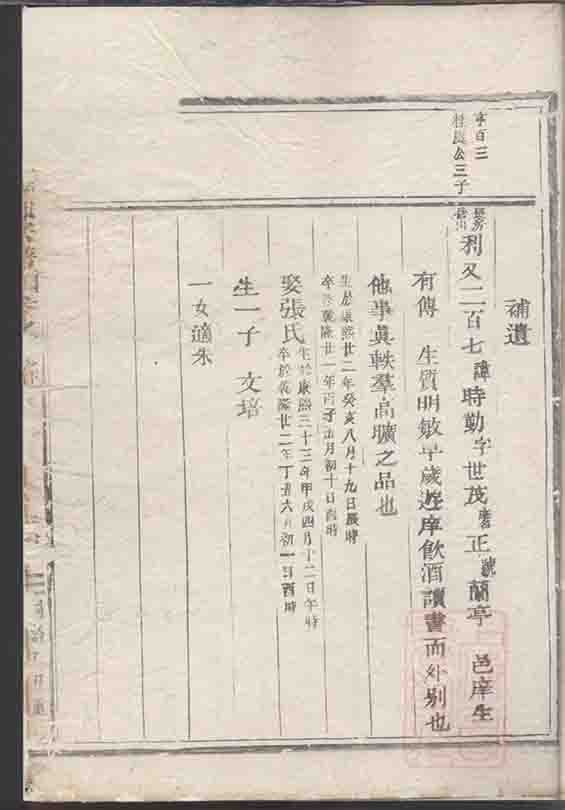 補遺
亨百三
公三子
利又二百七 諱時勤 字世茂 正 號蘭亭 邑庠生
有傳 生質明敏早歲遊庠飲酒讀書而外別也
他事真軼羣高曠之品也
生於康熙廿二年癸亥八月十九日辰時
卒於乾隆廿一年丙子 月初十日酉時
娶張氏 生於康熙三十三年甲戌四月十二日午時
卒於乾隆廿二年丁丑六月初一日酉時
生一子 文培
一女適朱